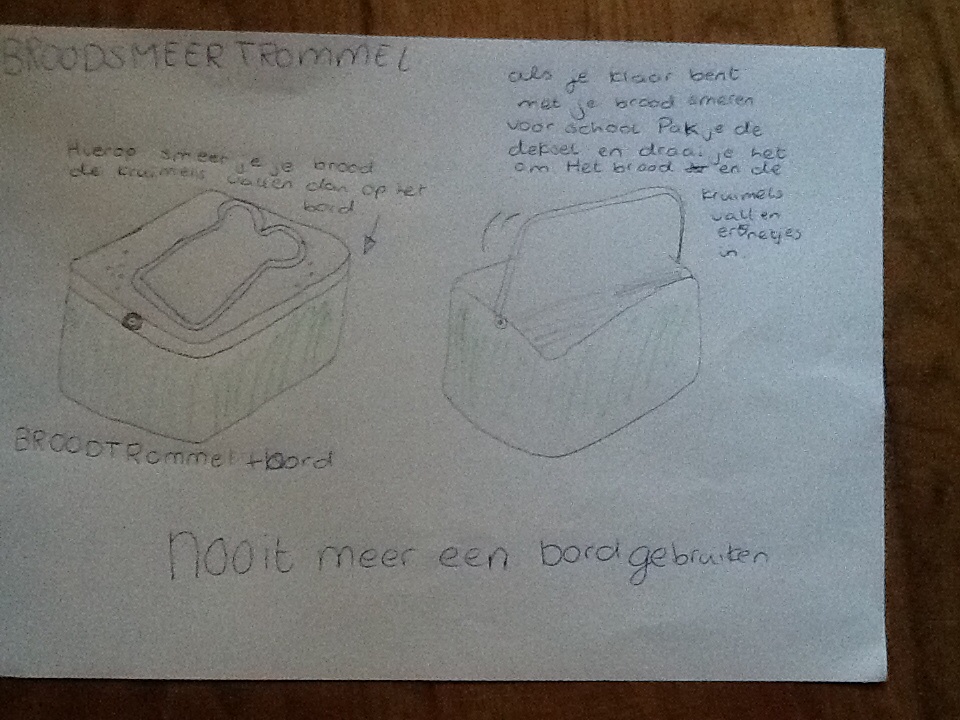 BROODSMEERTROMMEL
Hierop smeer je je brood
de kruimels vallen dan op het
bord
als je klaar bent
met je brood smeren
voor school Pak je de
deksel en draai je het
om Het brood en de
kruimels
vallen
er netjes
in.
BROODTRommel + bord
nooit meer een bord gebruiken